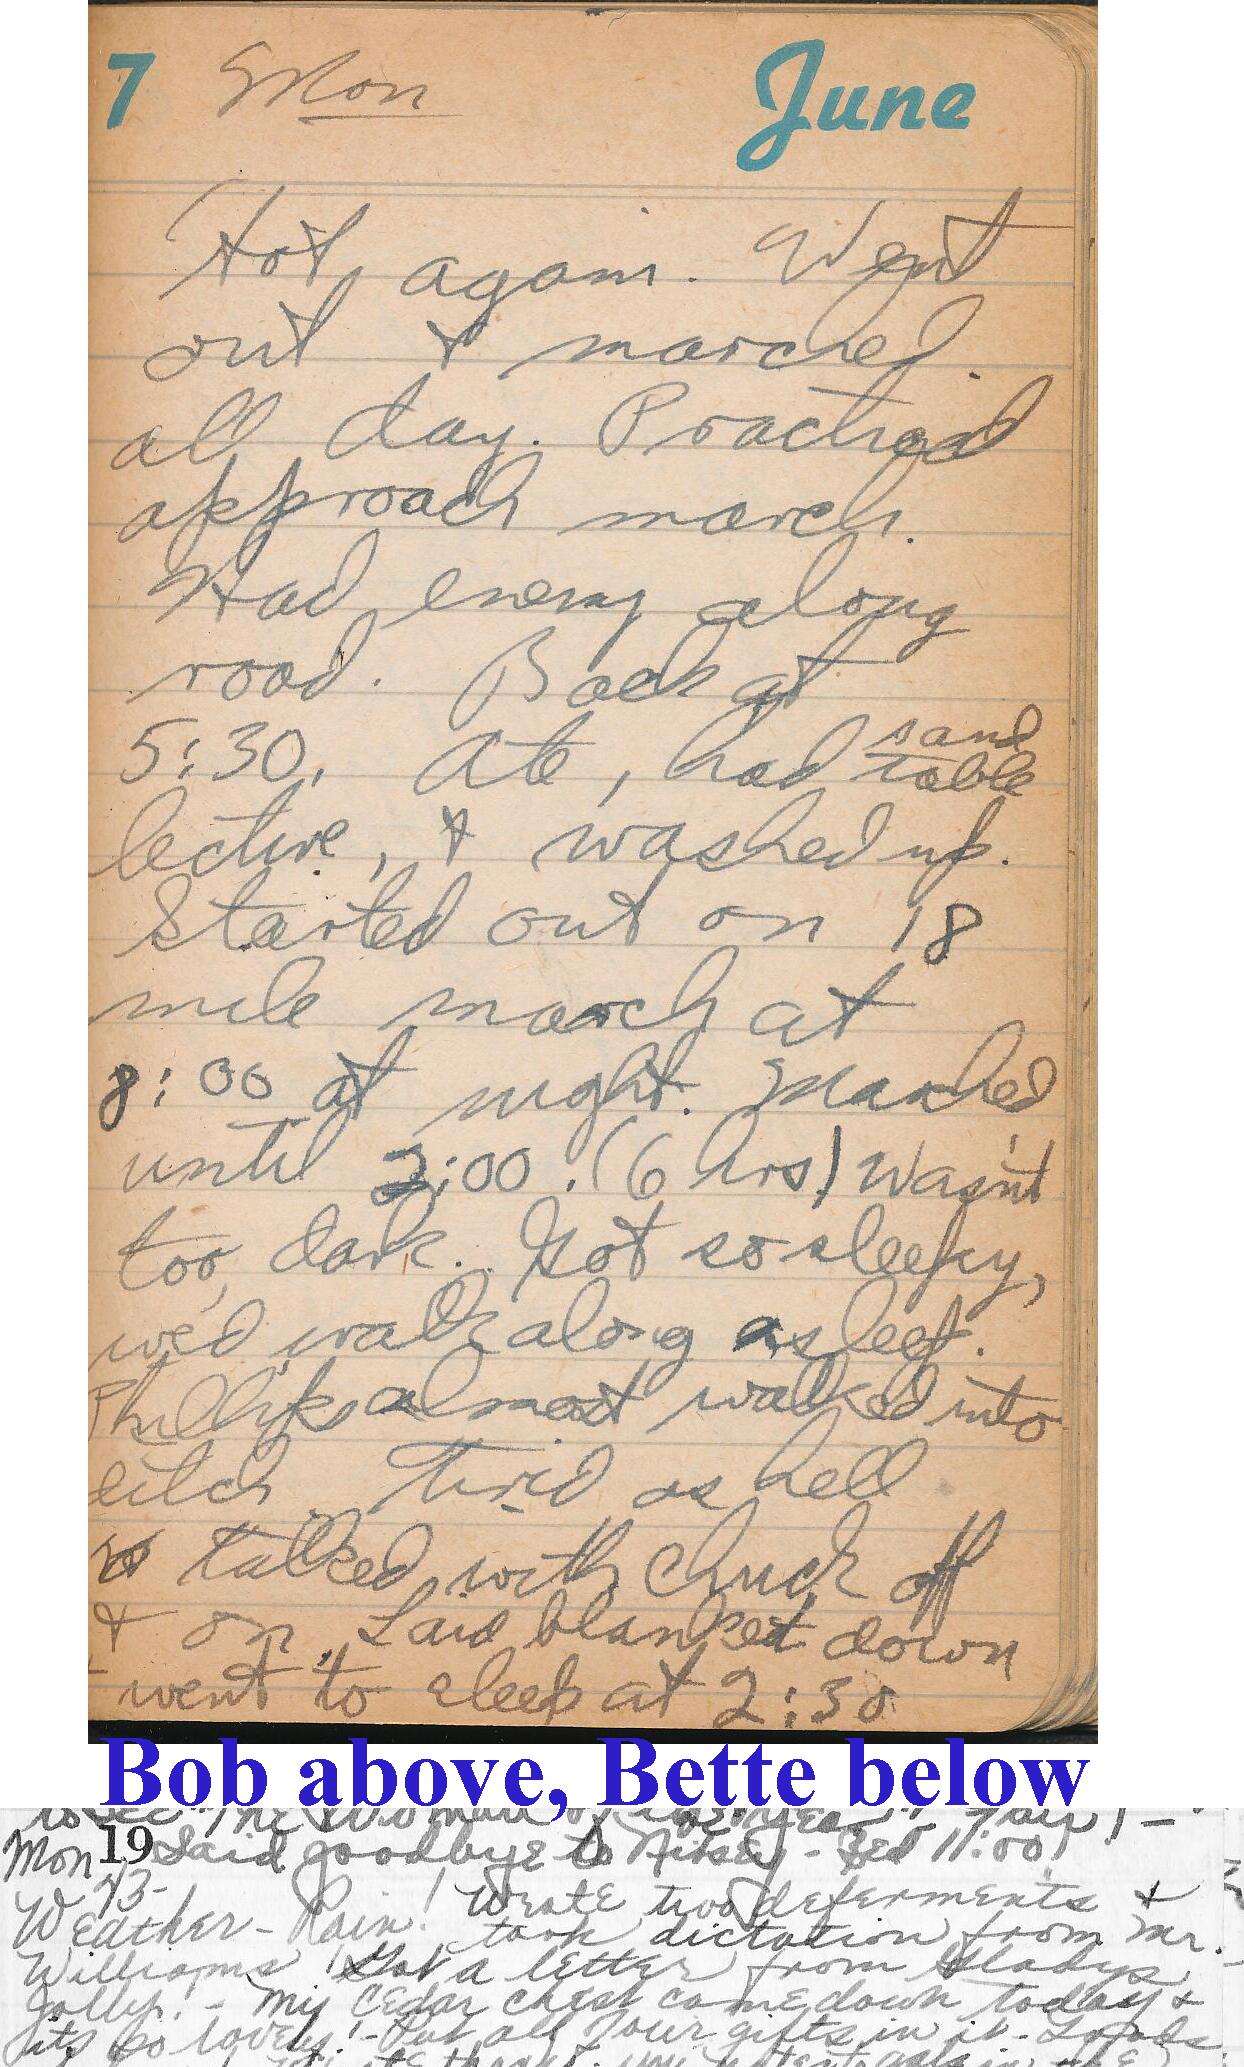 7 Mon June
Hot again. Went
out & marched
all day. Practiced
approach march.
Had enemy along
road. Back at
5:30. Ate, had sand table
lecture, & washed up.
Started out on 18
mile march at
8:00 at night. Marched
until 2:00. (6 hrs) Wasn't
too dark. Got so sleepy,
we'd walk along asleep.
Phillips almost walked into
ditch. Tired as hell
& talked with Chuck off
& on. Laid blanket down
& went to sleep at 2:30
Bob above, Bette below
to see "The Woman of the Year"
Mon 19 Said goodbye to - Bed 11:00!
43-
Weather - Rain! Wrote two deferments &
took dictation from Mr.
Williams! Got a letter from Gladys
Jolly! - My cedar chest came down today &
its so lovely! - Put all your gifts in it -